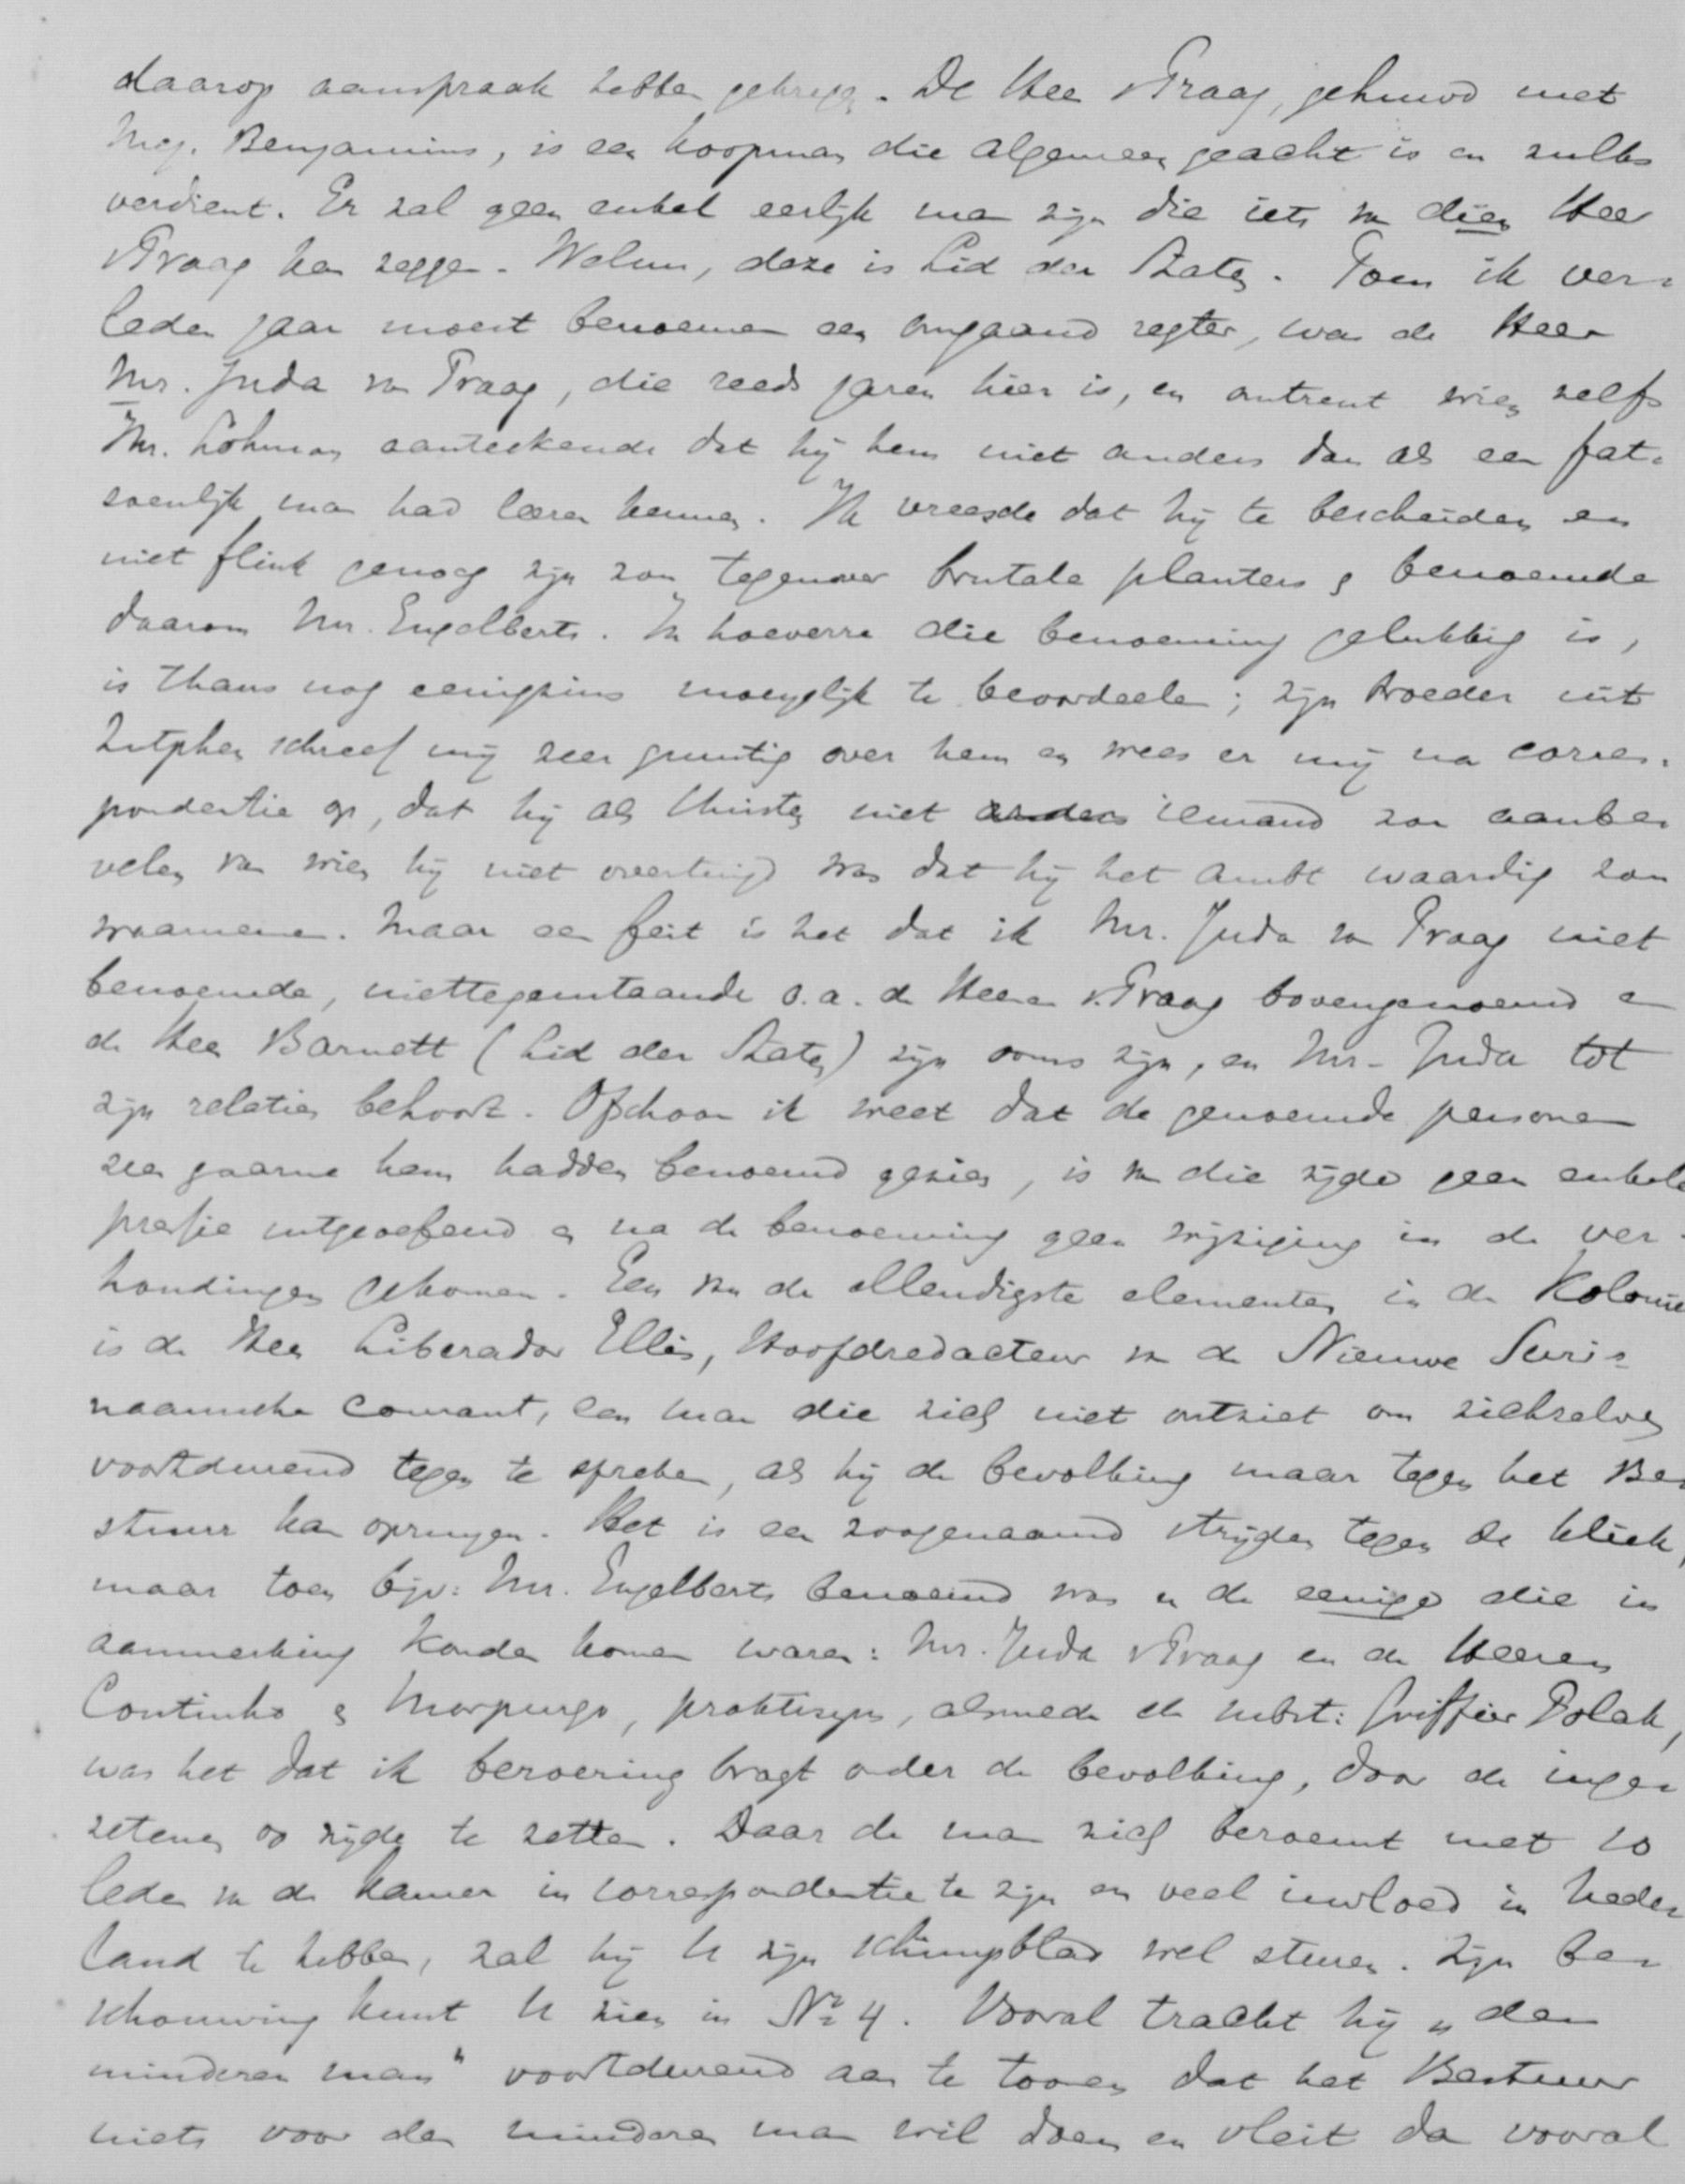 daarop aanspraak hebben gekregen. De Heer v Praag, gehuwd met
Mej. Benjamins, is een koopman die algemeen geacht is en zulks
verdient. Er zal geen enkel eerlijk man zijn die iets van dien Heer
v Praag kan zeggen. Welnu, deze is Lid der Staten. Toen ik ver-
leden jaar moest benoemen een omgaand regter, was de Heer
Mr. Juda van Praag, die reeds jaren hier is, en omtrent wien zelfs
Mr. Lohman aanteekende dat hij hem niet anders dan als een fat-
soenlijk man had leeren kennen. Ik vreesde dat hij te bescheiden en
niet flink genoeg zijn zou tegenover brutale planters & benoemde
daarom Mr. Engelberts. In hoeverre die benoeming gelukkig is,
is thans nog eenigzins moeyelijk te beoordeelen; zijn broeder uit
Zutphen schreef mij zeer gunstig over hem en wees er mij na corres-
pondentie op, dat hij als Christen niet anders iemand zou aanbe-
velen van wien hij niet overtuigd was dat hij het ambt waardig zou
waarnemen. Maar een feit is het dat ik Mr. Juda van Praag niet
benoemde, niettegenstaande o.a. de Heeren v. Praag bovengenoemd en
de Heer Barnett (Lid der Staten) zijn ooms zijn, en Mr. Juda tot
zijn relaties behoort. Ofschoon ik weet dat de genoemde personen
zeer gaarne hem hadden benoemd gezien, is van die zijde geen enkele
pressie uitgeoefend en na de benoeming geen wijziging in de ver-
houdingen gekomen. Een van de ellendigste elementen in de Kolonie
is de Heer Liberador Ellis, Hoofdredacteur van de Nieuwe Suri-
naamsche Courant, een man die zich niet ontziet om zichzelven
voortdurend tegen te spreken, als hij de bevolking maar tegen het Be-
stuur kan opruyen. Het is een zoogenaamd strijden tegen de kliek,
maar toen bijv: Mr. Engelberts benoemd was en de eenige die in
aanmerking konden komen waren: Mr. Juda v Praag en de Heeren
Coutinho & Morpurgo, praktizyns, alsmede de subst: Griffier Polak,
was het dat ik beroering bragt onder de bevolking, door de inge-
zetenen op zijde te zetten. Daar de man zich beroemt met 10
leden van de Kamer in correspondentie te zijn en veel invloed in Neder
land te hebben, zal hij U zijn schimpblad wel sturen. Zijn be-
schouwing kunt U zien in No 4. Vooral tracht hij „den
minderen man" voortdurend aan te toonen dat het Bestuur
niets voor den minderen man wil doen en vleit da vooral